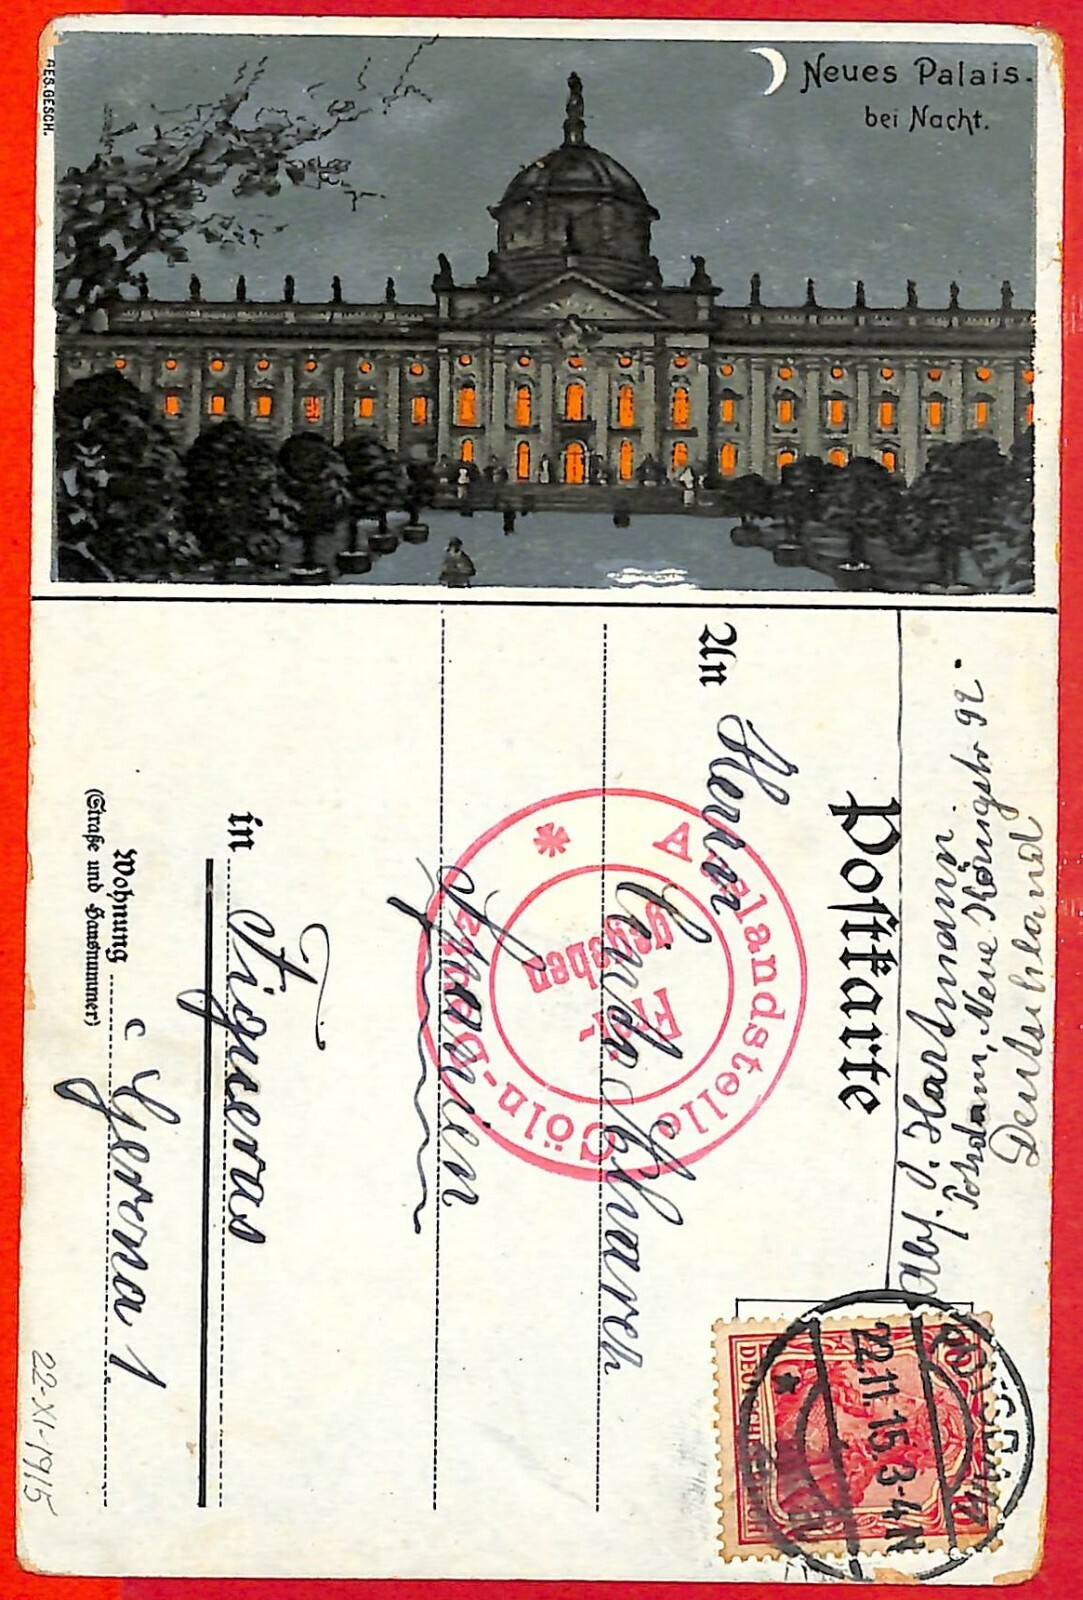 GES.GESCH.
Neues Palais.
bei Nacht.
Abs. P. Hartmann
Potsdam, Neue Königstr 92
Deutschland
Postkarte
An
Herrn
Spanien
in
Figueras
Wohnung
c Gerona 1
(Straße und Hausnummer)
Auslandstelle Cöln-Deutz
Frei
gegeben
POTSDAM
22.11.15.3-4N
10
10
DEUTSCHES REICH
22-XI-1915